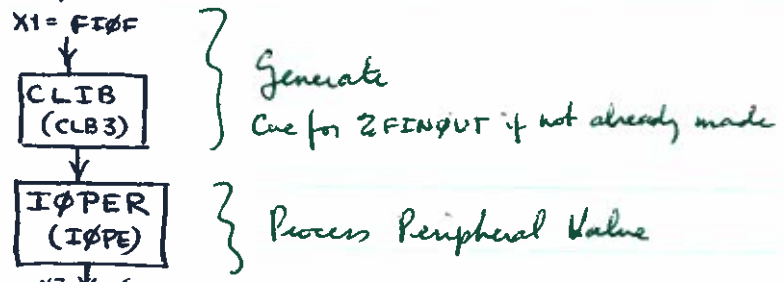 X1 = FIØF
CLIB
(CLB3)
Generate
Cue for %FINØUT if not already made
IØPER
(IØPE)
Process Peripheral Value